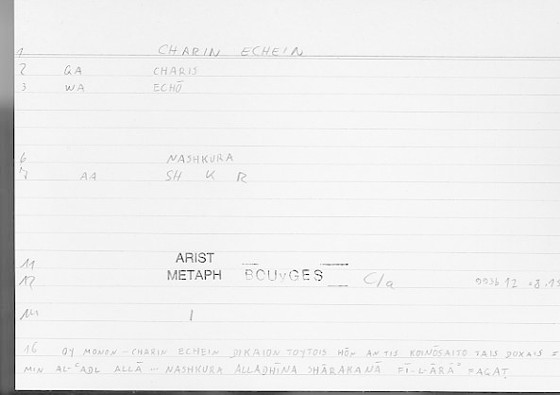 1 CHARIN ECHEIN
2 QA CHARIS
3 WA ECHŌ
6 NASHKURA
7 AA SH K R
11 ARIST
12 METAPH BOUYGES C/a
14 1
16 OY MONON - CHARIN ECHEIN DIKAION TOYTOIS HŌN AN TIS KOINŌSAITO TAIS DOXAIS =
MIN AL-ʿADL ALLĀ ... NASHKURA ALLADHĪNA SHĀRAKANĀ FĪ-L-ĀRĀʾ FAQAṬ